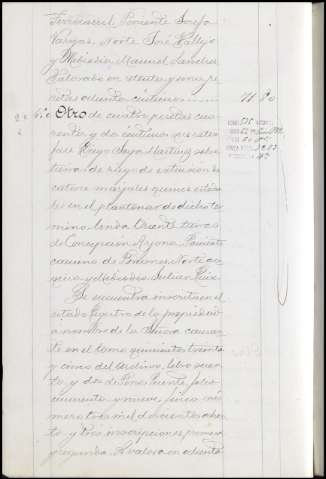 Ferrocarril, Poniente Josefa
Vargas, Norte José Vallejo
y Mediodía, Manuel Sanchez
Valorado en setenta y una pe-
setas ochenta céntimos 71 80
Otro de cuatro pesetas cua-
renta y dos céntimos que satis-
face Diego Saya Martinez sobre
tierra de riego de extension de
catorce marjales quince estada-
les en el plantonar de dicho ter-
mino, linda Oriente tierras
de Concepcion Arjona, Poniente
camino de Norte ace-
quia y Mediodia Julian Ruiz
Se encuentra inscrito en el
citado Registro de la propiedad
a nombre de la Señora causan-
te en el tomo quinientos treinta
y cinco del archivo, libro cuaren-
ta y dos de Pinos Puente, folio
cincuenta y nueve, finca nú-
mero tres mil doscientos ochen-
ta y tres, inscripciones primera
y segunda. Se valora en ochenta